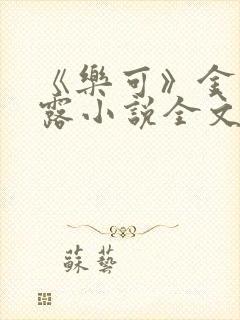 《樂可》金
露小說全文
蘇藝